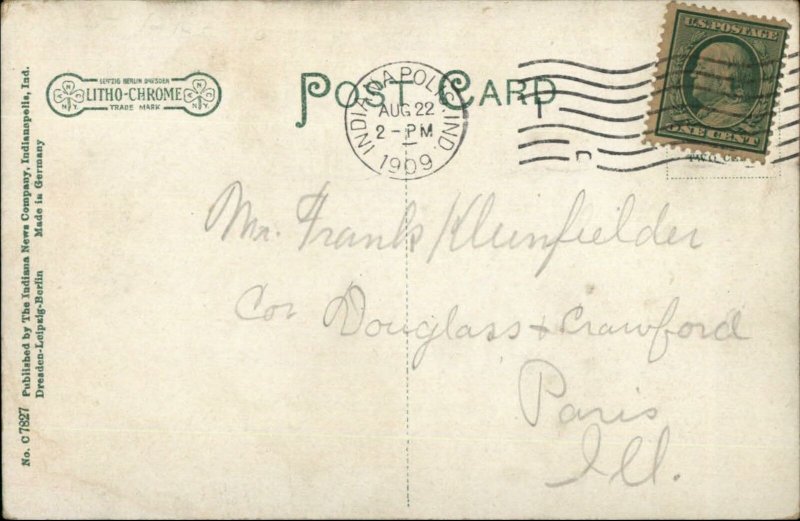 LEIPZIG BERLIN DRESDEN
LITHO-CHROME
TRADE MARK
POST CARD
INDIANAPOLIS, IND.
AUG 22
2-PM
1909
U.S. POSTAGE
ONE CENT
Mr. Frank Kleinfielder
Cor Douglass & Crawford
Paris
Ill.
No. C 7827 Published by The Indiana News Company, Indianapolis, Ind.
Dresden-Leipzig-Berlin Made in Germany